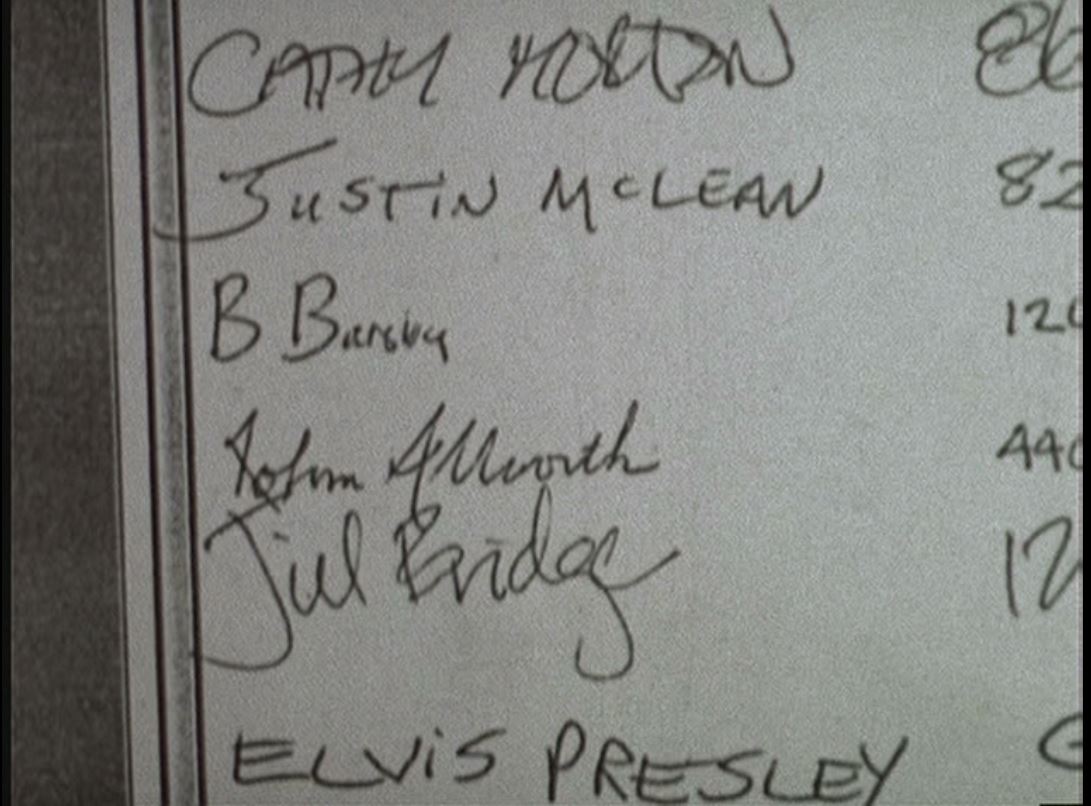 CATHY HORTON 86
JUSTIN McLEAN 82
B Barsby 120
John Allworth 440
Jill Bridge 12
ELVIS PRESLEY